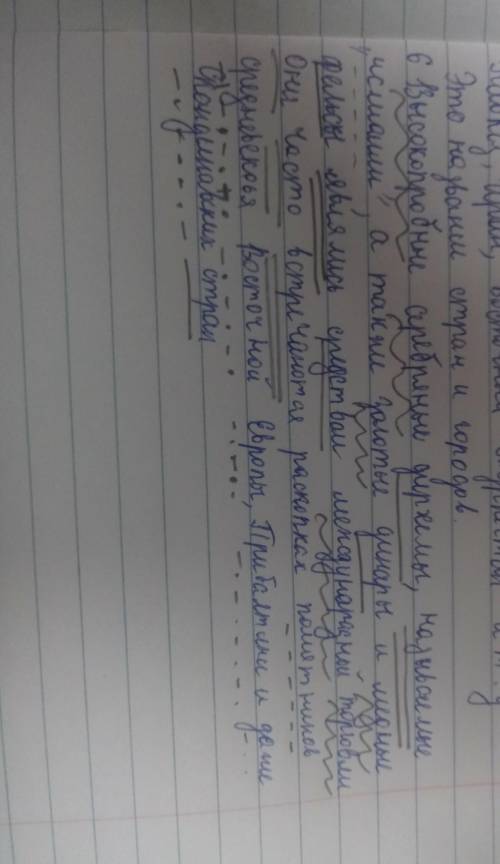 Это название стран и городов.
6 Высокопробные серебряные дирхемы, называемые
исмаили, а также золотые динары и медные
фельсы являлись средством международной торговли
Они часто встречаются раскопках памятников
средневековья Восточной Европы, Прибалтики и даже
Скандинавких стран